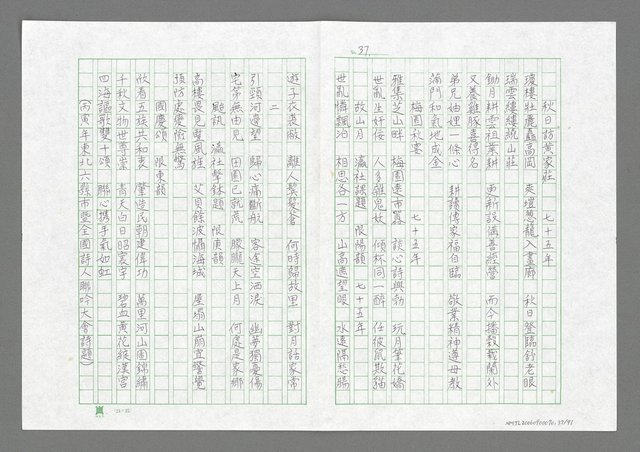 37.
秋日訪黃家莊　七十五年
瓊樓壯麗矗高岡　爽塏蔥龍入畫廊　秋日登臨舒老眼
瑞雲縷縷繞山莊
鋤月耕雲祖業耕　更新設備善經營　而今播穀載蘭外
又養雞豚喜得名
弟兄妯娌一條心　耕讀傳家福自臨　敬業精神遵母教
滿門和氣地成金
梅園秋宴　七十五年
雅集芝山畔　梅園遠市囂　談心詩興勃　玩月筆花嬌
世亂生奸佞　人多雜鬼妖　傾杯同一醉　任彼鼠欺貓
故山月　瀛社課題　限陽韻　七十五年
世亂憐飄泊　相思各一方　山高遮望眼　水遠隔愁腸
遊子衣裘敝　離人鬢髮蒼　何時歸故里　對月話家常
二
引頸河邊望　歸心痛斷航　客途空洒淚　幽夢獨憂傷
宅第無由見　田園已就荒　朦朧天上月　何處是家鄉
颱訊　瀛社擊鉢題　限庚韻
高樓畏見雙風旌　艾貝餘波懾海城　屋塌山崩宜警覺
預防處變恰無驚
國慶頌　限東韻
欣看五族共和衷　肇造民朝建偉功　萬里河山固錦繡
千秋文物世尊崇　青天白日昭寰宇　碧血黃花緞漢宮
四海謳歌雙十頌　聯心攜手氣如虹
（丙寅年東北六縣市暨全國詩人聯吟大會詩題）